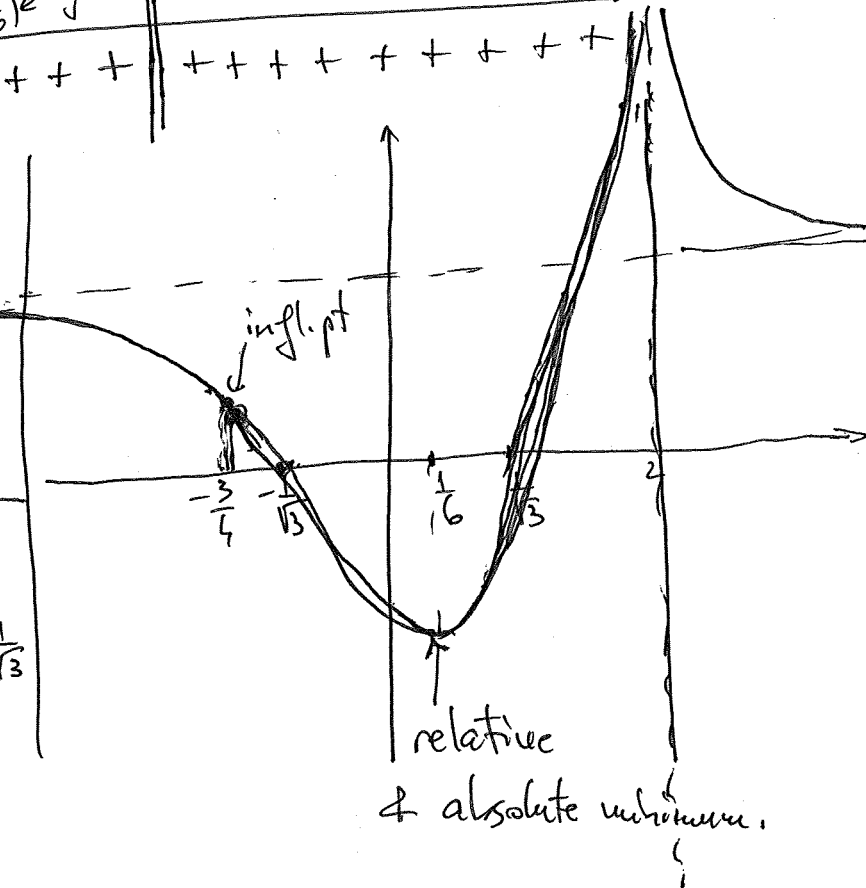 + + + + + + + + + + + +
infl.pt
-3/4 -1/√3 1/6 1/√3 2
1/√3
relative
& absolute minimum.